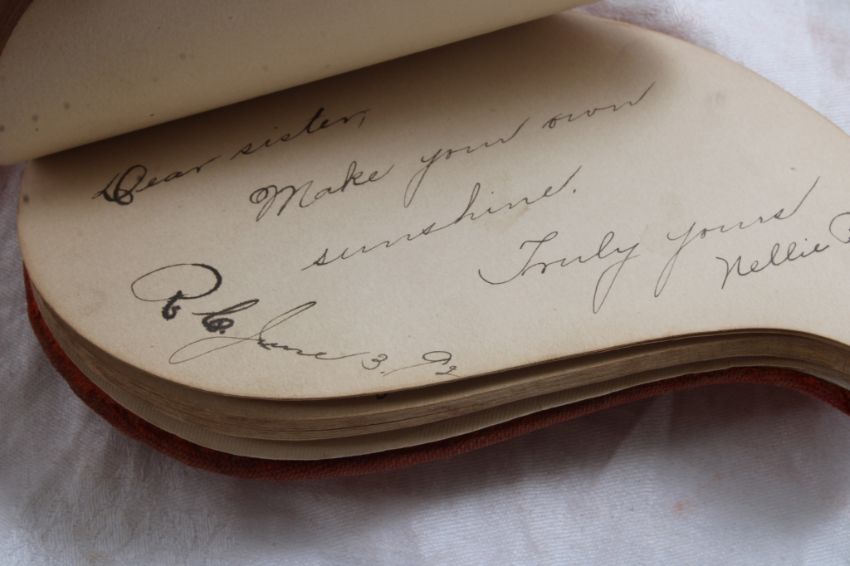 Dear sister,
Make your own
sunshine.
Truly yours
Nellie
June 3, 92